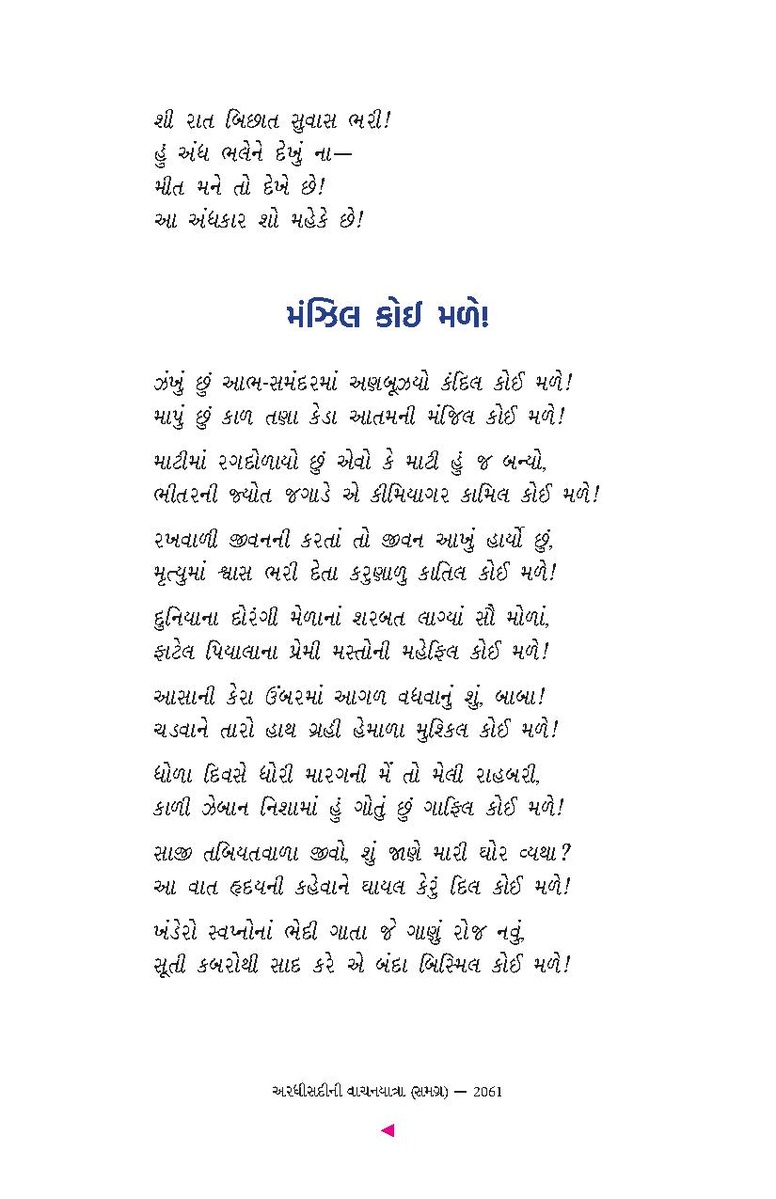 શી રાત બિછાત સુવાસ ભરી!
હું અંધ ભલેને દેખું ના—
મીત મને તો દેખે છે!
આ અંધકાર શો મહેકે છે!
મંઝિલ કોઈ મળે!
ઝંખું છું આભ-સમંદરમાં અણબૂઝયો કંદિલ કોઈ મળે!
માપું છું કાળ તણા કેડા આતમની મંજિલ કોઈ મળે!
માટીમાં રગદોળાયો છું એવો કે માટી હું જ બન્યો,
ભીતરની જ્યોત જગાડે એ કીમિયાગર કામિલ કોઈ મળે!
રખવાળી જીવનની કરતાં તો જીવન આખું હાર્યો છું,
મૃત્યુમાં શ્વાસ ભરી દેતા કરુણાળુ કાતિલ કોઈ મળે!
દુનિયાના દોરંગી મેળાનાં શરબત લાગ્યાં સૌ મોળાં,
ફાટેલ પિયાલાના પ્રેમી મસ્તોની મહેફિલ કોઈ મળે!
આસાની કેરા ઉંબરમાં આગળ વધવાનું શું, બાબા!
ચડવાને તારો હાથ ગ્રહી હેમાળા મુશ્કિલ કોઈ મળે!
ધોળા દિવસે ધોરી મારગની મેં તો મેલી રાહબરી,
કાળી ઝેબાન નિશામાં હું ગોતું છું ગાફિલ કોઈ મળે!
સાજી તબિયતવાળા જીવો, શું જાણે મારી ઘોર વ્યથા?
આ વાત હૃદયની કહેવાને ઘાયલ કેરું દિલ કોઈ મળે!
ખંડેરો સ્વપ્નોનાં ભેદી ગાતા જે ગાણું રોજ નવું,
સૂતી કબરોથી સાદ કરે એ બંદા બિસ્મિલ કોઈ મળે!
અરધીસદીની વાચનયાત્રા (સમગ્ર) — 2061